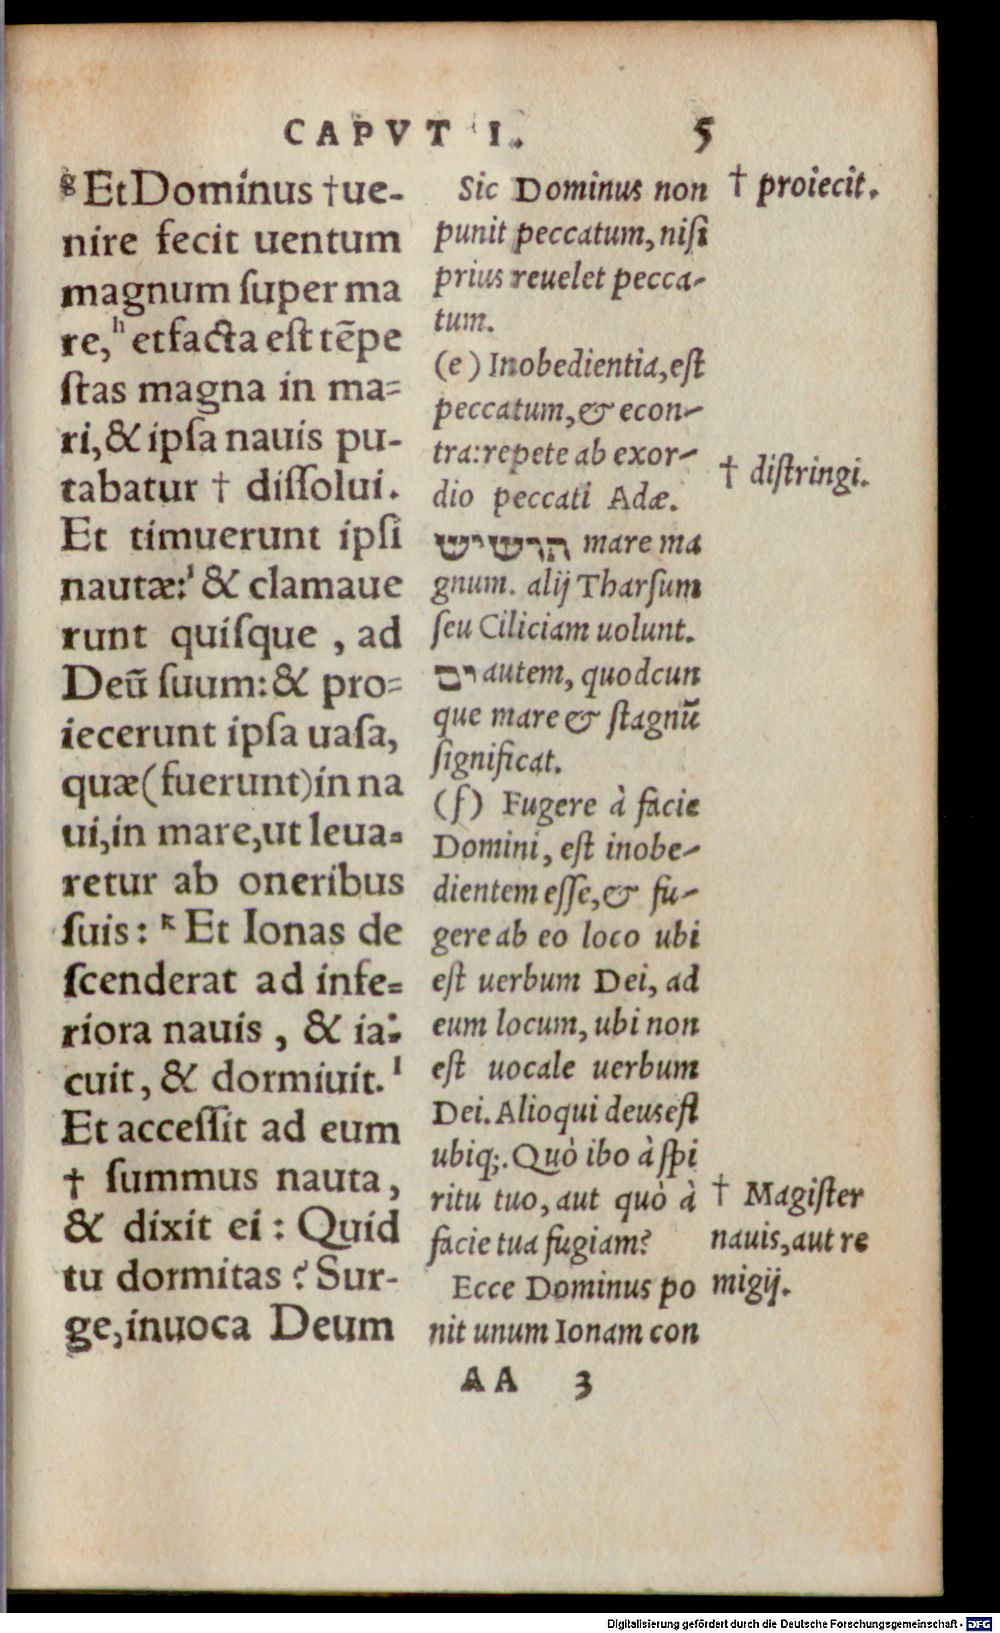 CAPVT I. 5
g Et Dominus † ue-
nire fecit uentum
magnum super ma
re, h et facta est tẽpe
stas magna in ma=
ri, & ipsa nauis pu-
tabatur † dissolui.
Et timuerunt ipsi
nautæ: i & clamaue
runt quisque , ad
Deũ suum: & pro=
iecerunt ipsa uasa,
quæ (fuerunt) in na
ui, in mare, ut leua=
retur ab oneribus
suis: K Et Ionas de
scenderat ad infe=
riora nauis , & ia=
cuit, & dormiuit. l
Et accessit ad eum
† summus nauta,
& dixit ei : Quid
tu dormitas ? Sur-
ge, inuoca Deum
Sic Dominus non
punit peccatum, nisi
prius reuelet pecca-
tum.
(e) Inobedientia, est
peccatum, & econ-
tra: repete ab exor-
dio peccati Adæ.
הרשיש mare ma
gnum. alij Tharsum
seu Ciliciam uolunt.
ים autem, quodcun
que mare & stagnũ
significat.
(f) Fugere à facie
Domini, est inobe-
dientem esse, & fu-
gere ab eo loco ubi
est uerbum Dei, ad
eum locum, ubi non
est uocale uerbum
Dei. Alioqui deus est
ubiq;. Quò ibo à spi
ritu tuo, aut quò à
facie tua fugiam?
Ecce Dominus po
nit unum Ionam con
† proiecit.
† distringi.
† Magister
nauis, aut re
migij.
AA 3
Digitalisierung gefördert durch die Deutsche Forschungsgemeinschaft - DFG